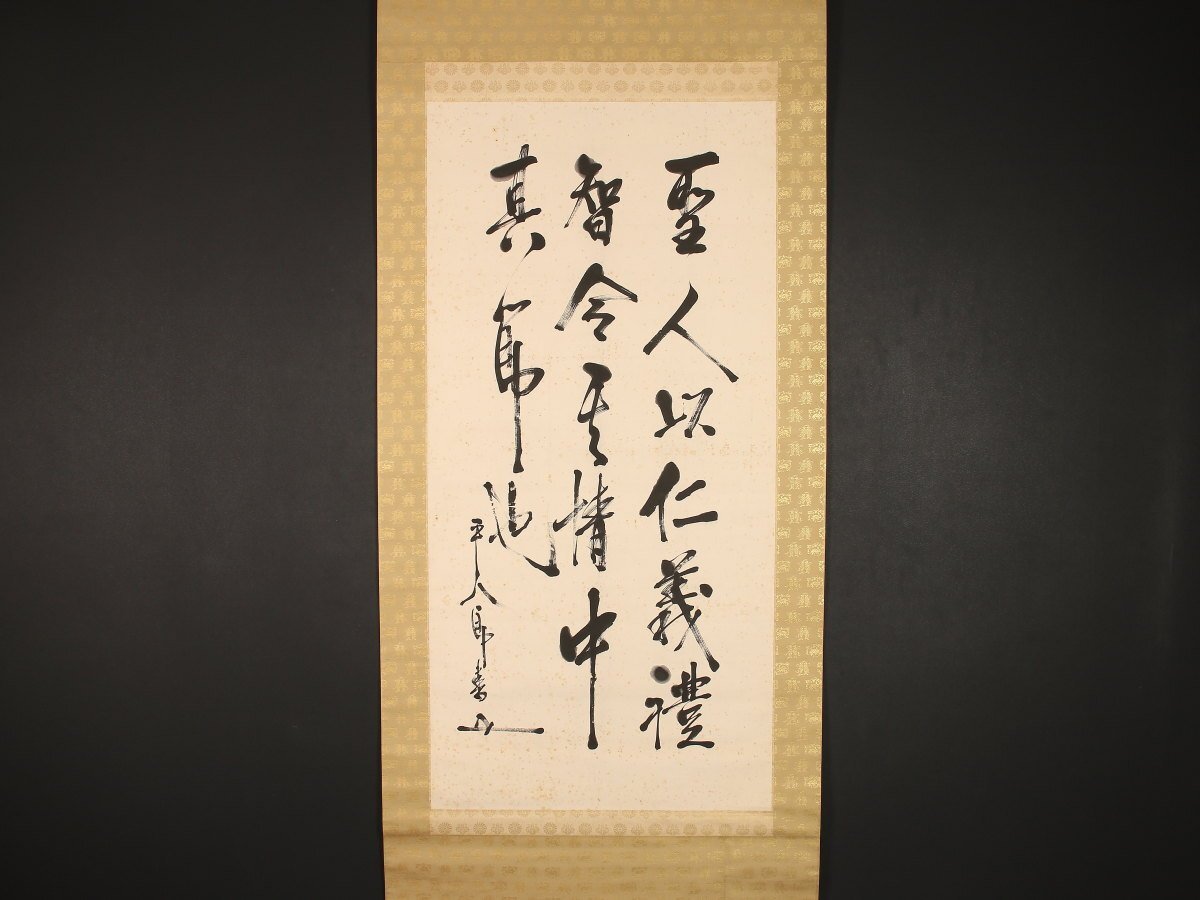 聖人以仁義禮
智令其情中
真節也
平八郎書